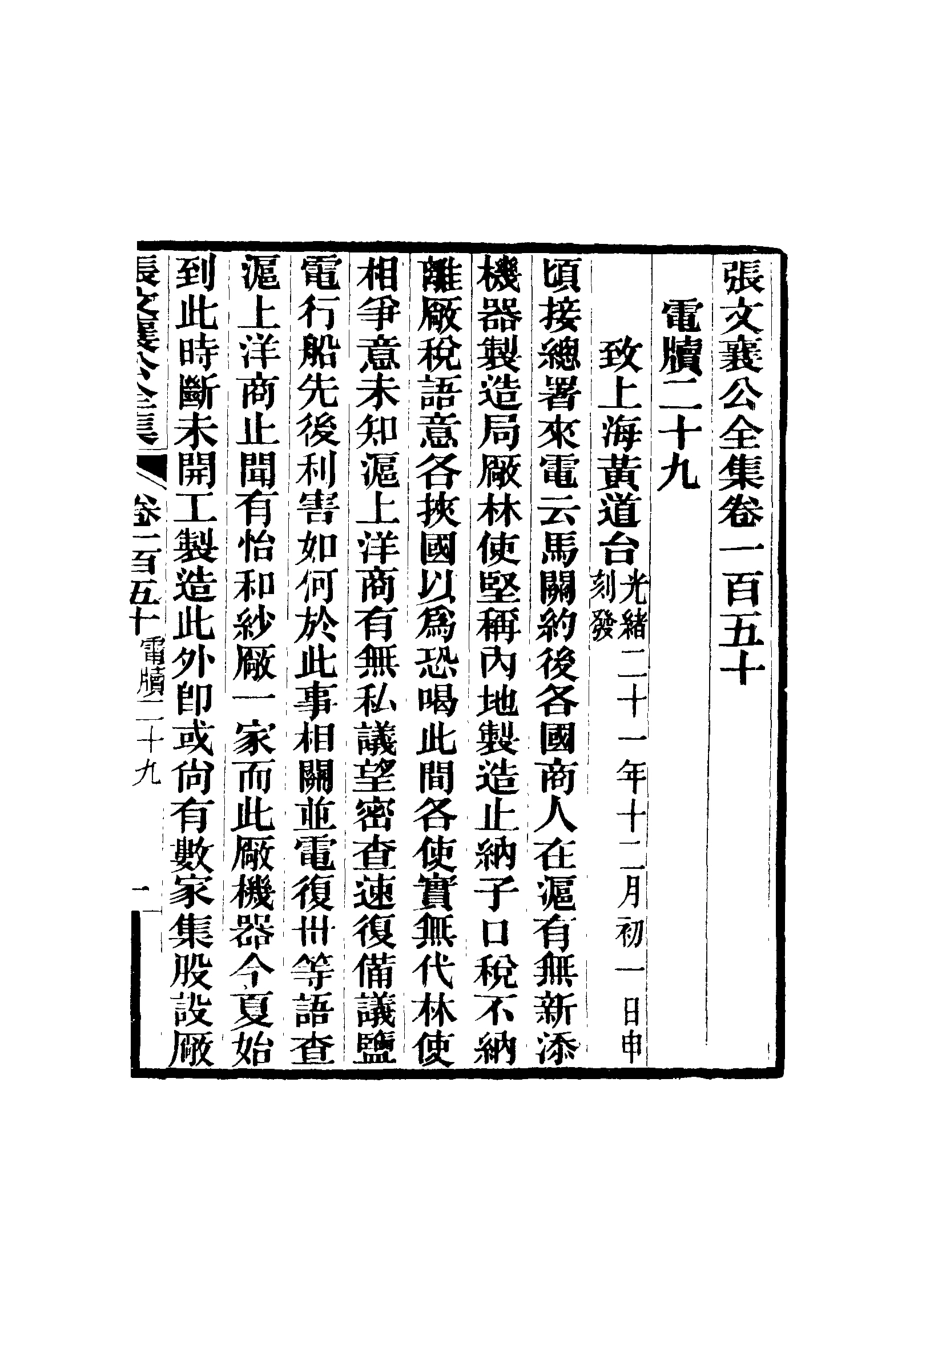 張文襄公全集卷一百五十
電牘二十九
致上海黃道台光緒二十一年十二月初一日申刻發
頃接總署來電云馬關約後各國商人在滬有無新添
機器製造局廠林使堅稱內地製造止納子口稅不納
離廠稅語意各挾國以爲恐喝此間各使實無代林使
相爭意未知滬上洋商有無私議望密查速復備議鹽
電行船先後利害如何於此事相關並電復卅等語查
滬上洋商止聞有怡和紗廠一家而此廠機器今夏始
到此時斷未開工製造此外卽或尙有數家集股設廠
張文襄公全集 卷一百五十 電牘二十九 一